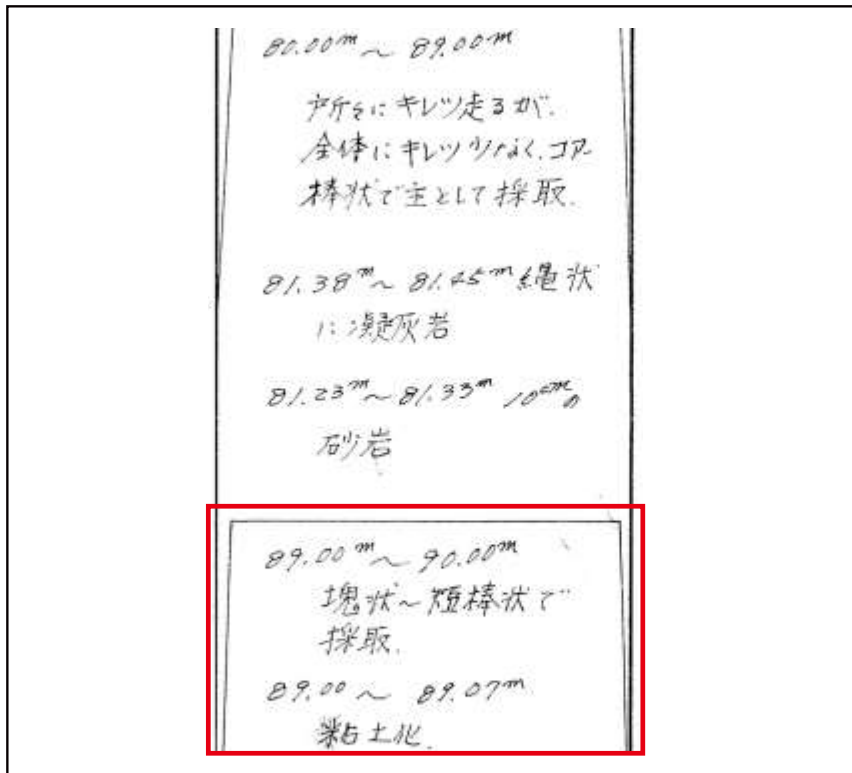 80.00m～89.00m
所々にキレツ走るが、
全体にキレツ少なく、コアー
棒状で主として採取.
81.38m～81.45m 縄状
に凝灰岩
81.23m～81.33m 10cmの
砂岩
89.00m～90.00m
塊状～短棒状で
採取.
89.00～89.07m
粘土化.